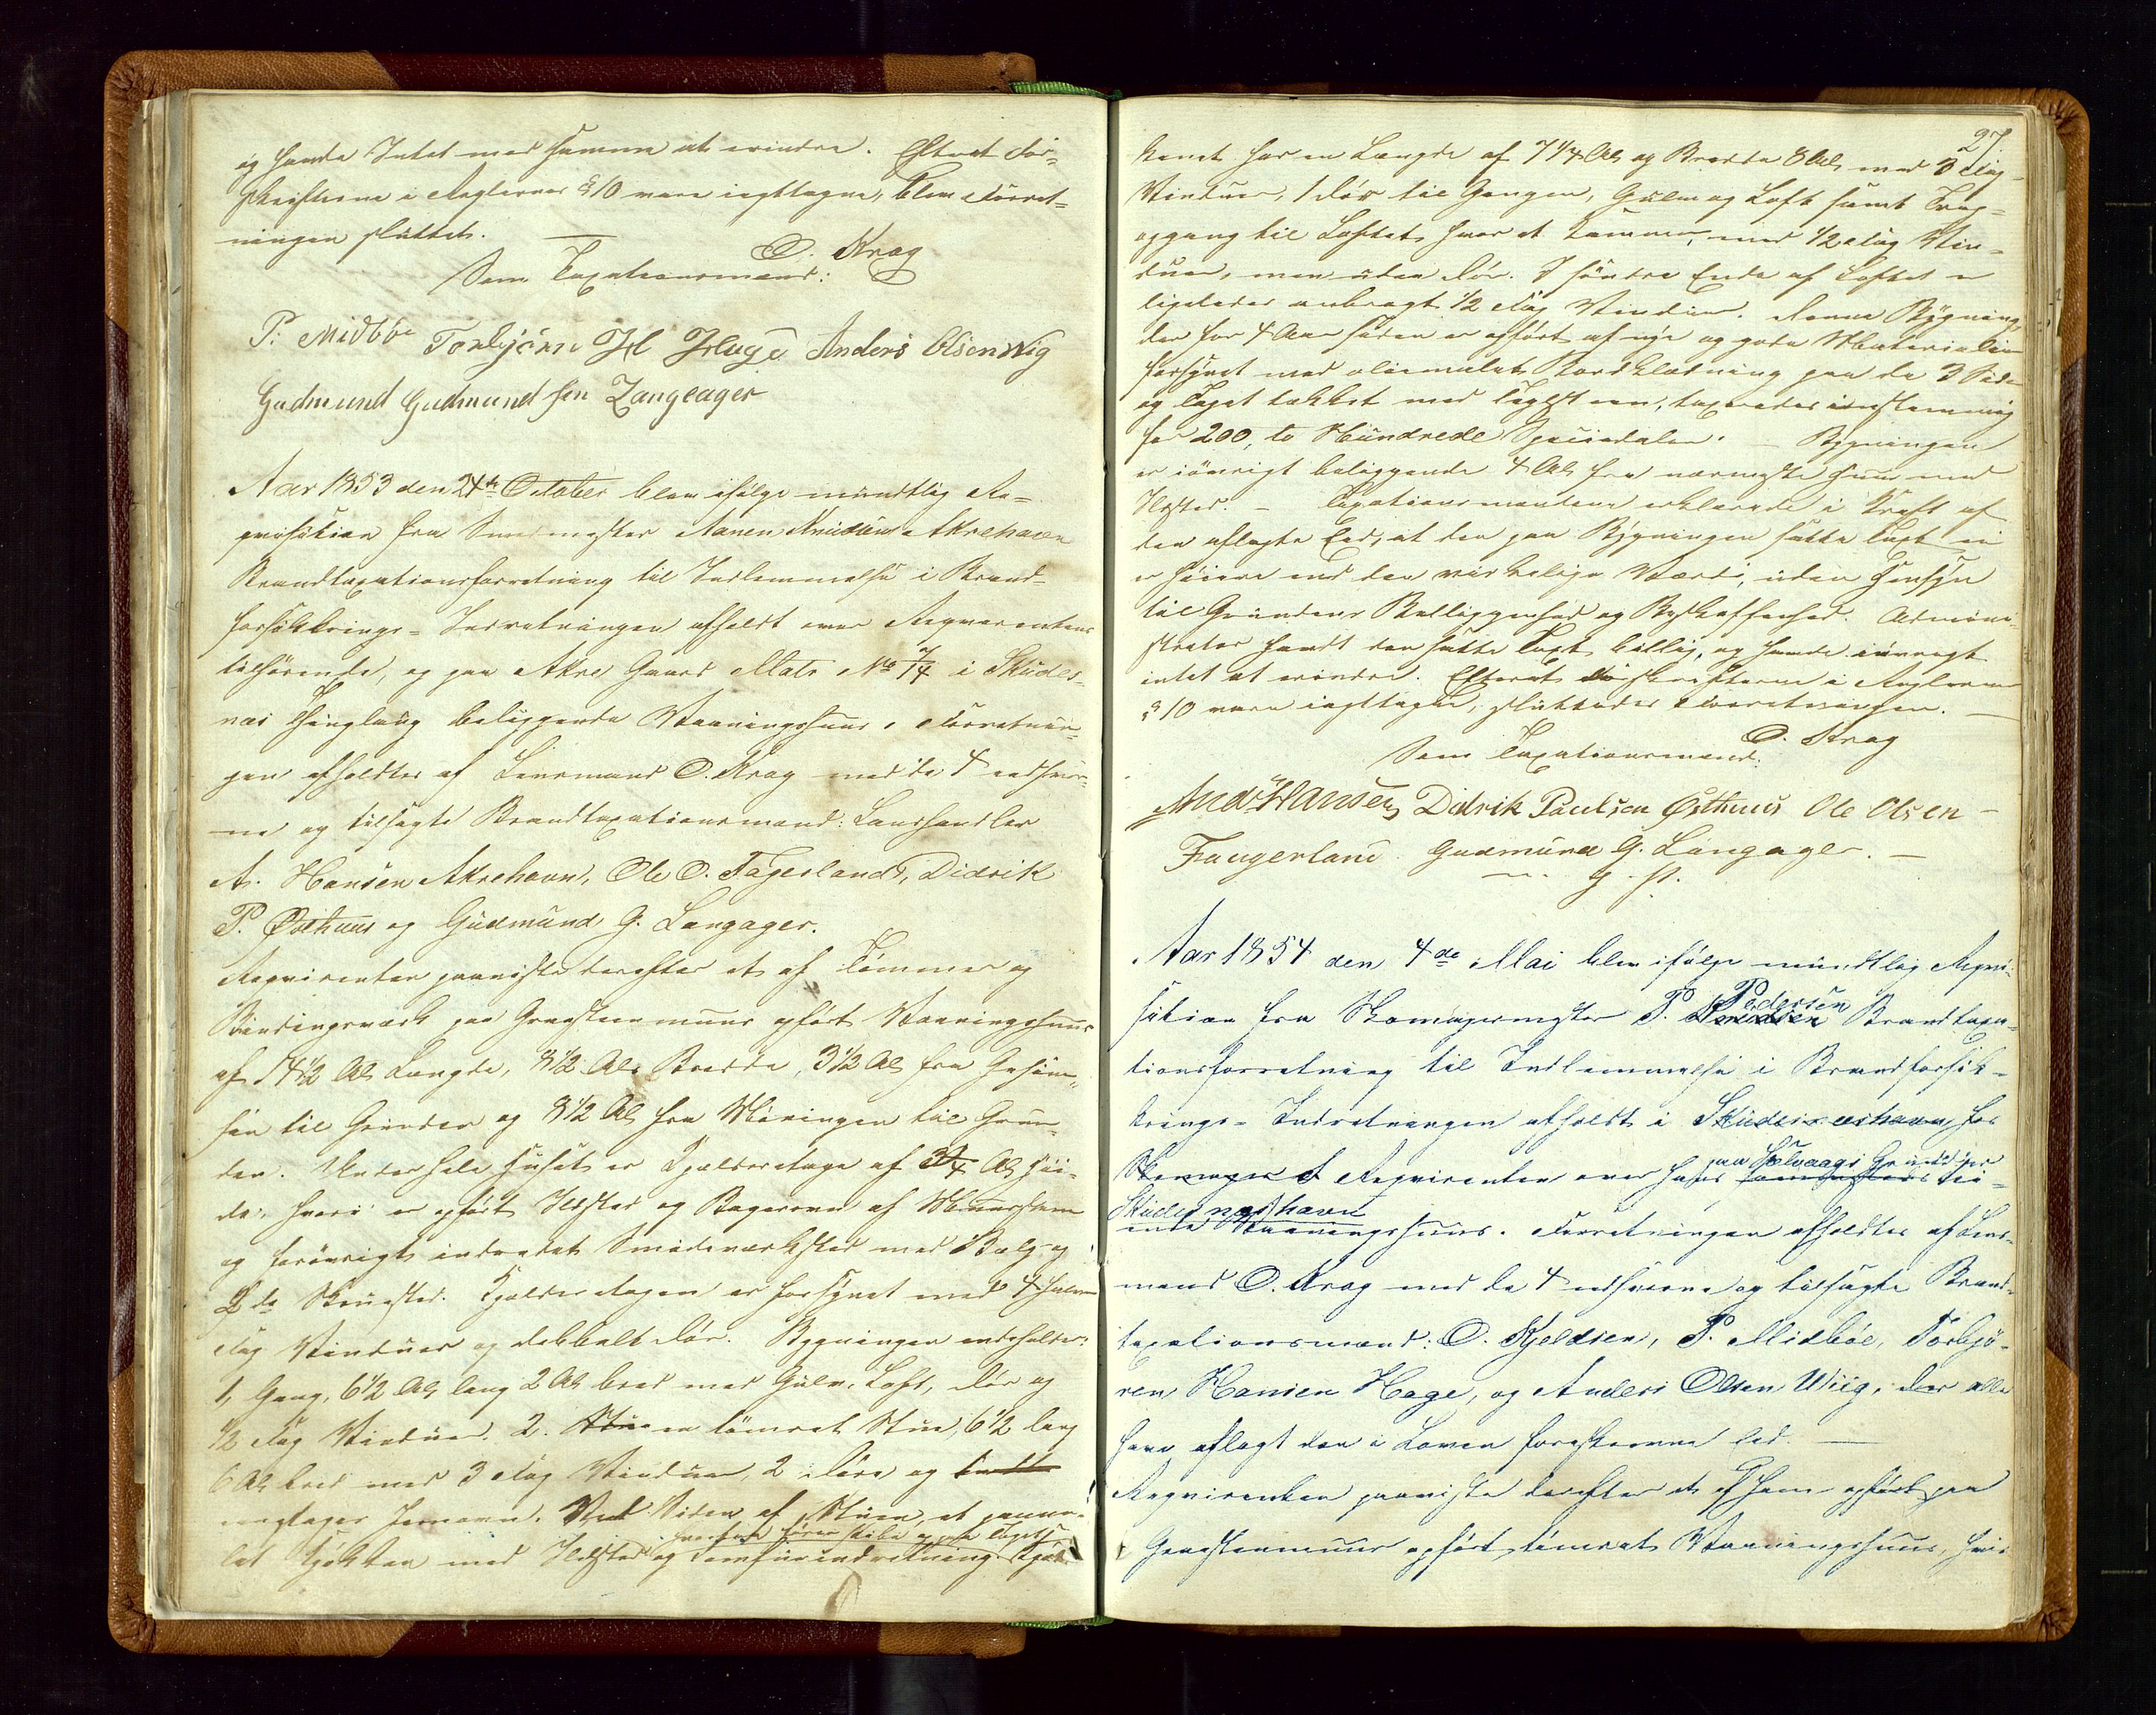 og havde Intet med Summen at erindre. Efterat For-
skrifterne i Reglernes § 10 vare iagttagne, blev Forret-
ningen sluttet.
O. Krag
Som Taxationsmænd:
P. Midböe Torbjörn H Hage Anders Olsen Wiig
Gudmund Gudmundsen Langeager
Aar 1853 den 24de October blev ifølge mundtlig Re-
qvisition fra Smedmester Aanen Knudsen Akrehavn
Brandtaxationsforretning til Indlemmelse i Brand-
forsikkrings-Indretningen afholdt over Reqvirentens
tilhørende, og paa Akre Gaard Matr No 7/4 i Skudes-
næs Thinglaug beliggende Vaaningshuus. Forretnin-
gen afholdtes af Lensmand O. Krag med de 4 edsvor-
ne og tilsagte Brandtaxationsmænd: Landhandler
A. Hansen Akrehavn, Ole O. Fagerland, Didrik
P. Østhuus og Gudmund G. Langager.
Reqvirenten paaviste derefter et af Tømmer og
Bindingsværk paa Graasteensmuur opført Vaaningshuus
af 14 1/2 Al Længde, 8 1/2 Al Bredde, 3 1/2 Al fra Gesim-
sen til Grunden og 8 1/2 Al fra Møningen til Grun-
den. Under hele Huset er Kjelderetage af 3/4 Al Høi-
de, hvori er opført Ildsted og Bagerovn af Muursteen
og forøvrigt indredet Smedeværksted med Bælg og
2de Skruested. Kjelderetagen er forsynet med 4 halve
Fag Vinduer og dobbelt Dør. Bygningen indeholder:
1, Gang, 6 1/2 Al lang 2 Al bred med Gulv, Loft, Dør og
1/2 Fag Vinduer. 2. Stue en tømret Stue, 6 1/2 lang
6 Al bred med 3 Fag Vinduer, 2 Døre og
Jernovn. Ved Siden af Stuen et panne-
hvorfra fører Pibe op over Taget
let Kjøkken med Ildsted og Komfurindretning. Kjøk-
27.
kenet har en Længde af 7 1/4 Al og Bredde 8 Al med 3 Fag
Vinduer, 1 Dør til Gangen, Gulv og Loft samt Trap-
opgang til Loftet, hvor et Kammer, med 1/2 Fag Vin-
duer, men uden Dør. I søndre Ende af Loftet er
ligeledes anbragt 1/2 Fag Vinduer. Denne Bygning,
der for 4 Aar siden er opført af nye og gode Materialier
forsynet med oliemalet Bordklædning paa de 3 Sider
og Taget tækket med Taglsteen, taxeredes eenstemmig
for 200, to Hundrede Speciedaler. – Bygningen
er iøvrigt beliggende 4 Al fra nærmeste Huus med
Ildsted. – Taxationsmændene erklærede i Kraft af
den aflagte Eed, at den paa Bygningen satte Taxt ei
er høiere end den virkelige Værdi, uden Hensyn
til Grundens Beliggenhed og Beskaffenhed. Admini-
strator fandt den satte Taxt billig, og havde iøvrigt
intet at erindre. Efterat Forskrifterne i Reglernes
§ 10 vare iagttagne, sluttedes Forretningen. –
O. Krag
Som Taxationsmænd:
And. Hansen Didrik Paulsen Østhuus Ole Olsen –
Faugerland Gudmund G. Langager. –
Aar 1854 den 4de Mai blev ifølge mundtlig Reqvi-
Pedersen
sition fra Skomagermester P. Knudsen Brandtaxa-
tionsforretning til Indlemmelse i Brandforsik-
krings-Indretningen afholdt i Skudesnæshavn, hos
paa Sølvaags Grund ved
Skomager Reqvirenten over hans tilhø-
Skudesnæshavn
ende Vaaningshuus. Forretningen afholdtes af Lens-
mand O. Krag med de 4 edsvorne og tilsagte Brand-
taxationsmænd: O. Kjeldsen, P. Midböe, Torbjö-
ren Hansen Hage, og Anders Olsen Wiig, der alle
have aflagt den i Loven foreskrevne Eed. –
Reqvirenten paaviste derefter et af ham opført paa
Graasteensmuur opført tømret Vaaningshuus, hvis